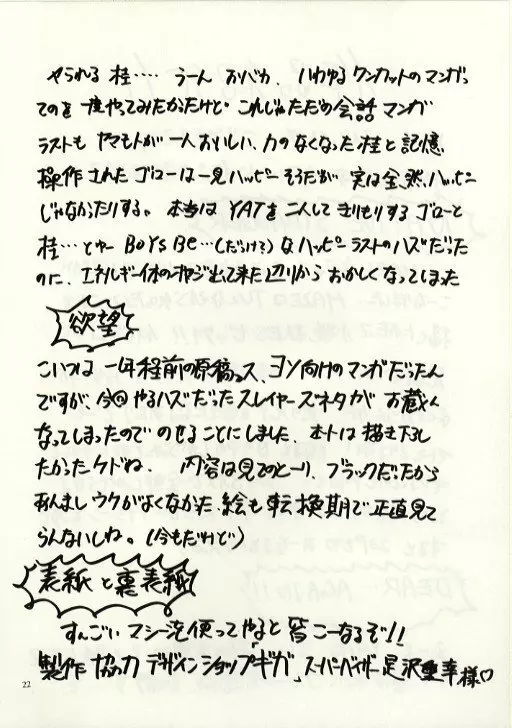 やられる 桂‥‥ うーん おバカ、いわゆるワンカットのマンガっ
てのを一度やってみたかったけど これじゃただの会話マンガ
ラストも ヤマモトが一人おいしい、力のなくなった桂と記憶
操作されたゴローは一見ハッピーそうだが 実は全然ハッピー
じゃなかったりする。本当は YATを二人してきりもりするゴローと
桂…とゆー BOYS BE…(だっけ?)なハッピーラストのハズだった
のに、エネルギー体のオヤジ出て来た辺りからおかしくなってしまった
欲望
こいつは 一年程前の原稿っス、コン向けのマンガだったん
ですが、今回やるハズだったスレイヤーズネタがお蔵入
なってしまったのでのせることにしました、ホントは描き下し
たかったケドね、内容は見てのとーり、ブラックだったから
あんましウケがよくなかった、絵も転換期で正直見て
らんないしね。(今もだけど)
表紙と裏表紙
すんごい マシーン使ってやると こーなるぞ!!
製作協力 デザインショップ「ギガ」スーパーバイザー 足沢 様♡
22